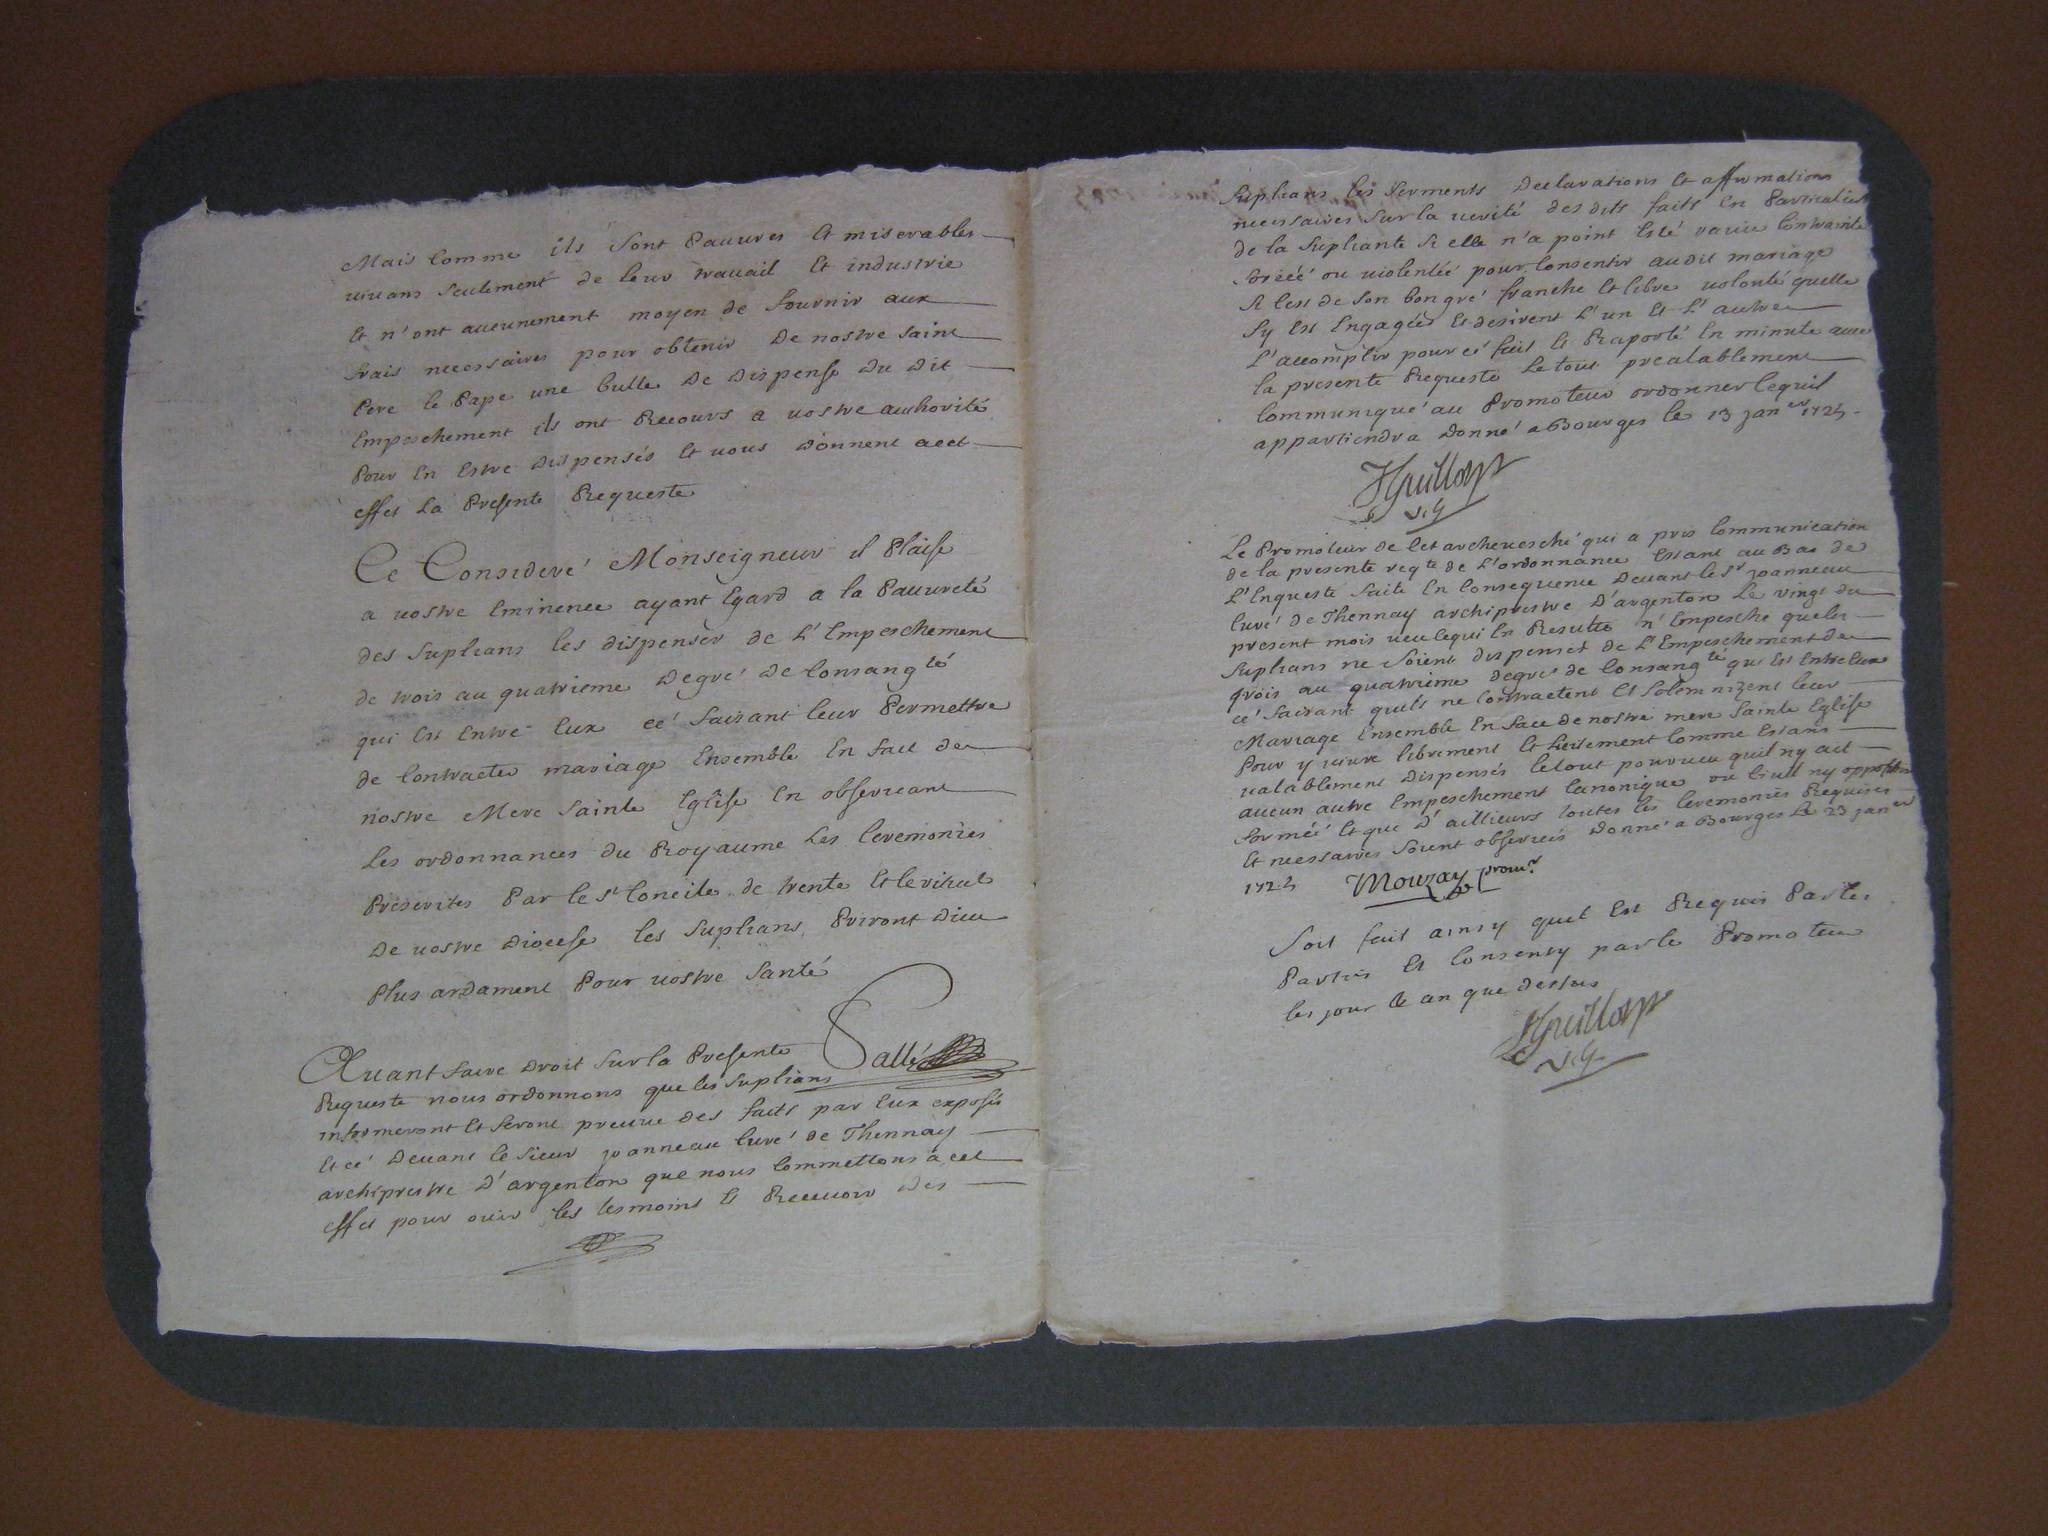 Mais Comme ils sont Pauures Et miserables
uiuans seulement de leur trauail Et industrie
Et n'ont aucunement moyen de fournir aux
frais necessaires pour obtenir De nostre saint
Pere le Pape une bulle De Dispense Du Dit
Empeschement ils ont Recours a uostre authorité
Pour En Estre Dispensés Et uous Donnent acet
effet La Presente Requeste
Ce Consideré Monseigneur il Plaise
a uostre Eminence ayant Egard a la Pauureté
des Suplians les dispenser de L'Empeschement
de trois au quatrieme Degré De Consang té
qui Est Entre Eux cé faisant leur Permettre
de Contracter mariage Ensemble En face de
nostre Mere Sainte Eglise En obseruant
Les ordonnances du Royaume Les Ceremonies
Prescrites Par le st Concile de trente Et le rituel
De uostre Diocese les Suplians Priront Dieu
Plus ardament Pour uostre Santé
Pallé
Auant faire Droit Sur la Presente
Requeste nous ordonnons que les Suplians
informeront Et feront preuue des faits par Eux exposés
Et cé Deuant le Sieur joanneau Curé de Thennay
archiprestre D'argenton que nous Commettons a cet
effet pour ouir les tesmoins Et Receuoir des
Suplians les Serments Declarations Et affirmations
necessaires Sur la uerité des dits faits En Particulier
de la Supliante Si elle n'a point Esté rauie Contrainte
forcéé ou uiolentéé pour Consentir audit mariage
Si Cest de Son bon gré franche Et libre uolonté quelle
Sy Est Engagée Et desirent L'un Et L'autre
L'accomplir pour cé fait Et Raporté En minute auec
la presente Requeste Le tout prealablement
Communiqué au Promoteur ordonner Cequil
appartiendra Donné a Bourges le 13 jan er 1723
HGuillois
V.G
Le Promoteur de Cet archeuesché qui a pris Communication
de la presente reqte de L'ordonnance Estant au Bas de
L'Enqueste faite En Consequence Deuant le Sr joanneau
Curé de Thennay archiprestre D'argenton Le vingt du
present mois ueu Cequi En Resulte n'Empesche que les
Suplians ne Soient dispensés de L'Empeschement de
trois au quatrieme degré de Consang té qui Est Entre Eux
cé faisant quils ne Contractent Et Solemnizent leur
Mariage Ensemble En face de nostre mere Sainte Eglise
Pour y uiure librement Et licitement Comme Estans
ualablement Dispensés Le tout pourueu quil ny ait
aucun autre Empeschement Canonique ou Ciuil ny opposition
forméé Et que D'ailleurs toutes les Ceremonies Requises
Et necessaires Soient obseruéés Donné a Bourges Le 23 jan er
1723 Mouzay promr
Soit fait ainsy quil Est Requis Par les
Parties Et Consenty par le Promoteur
les jour & an que Dessus
HGuillois
V.G.